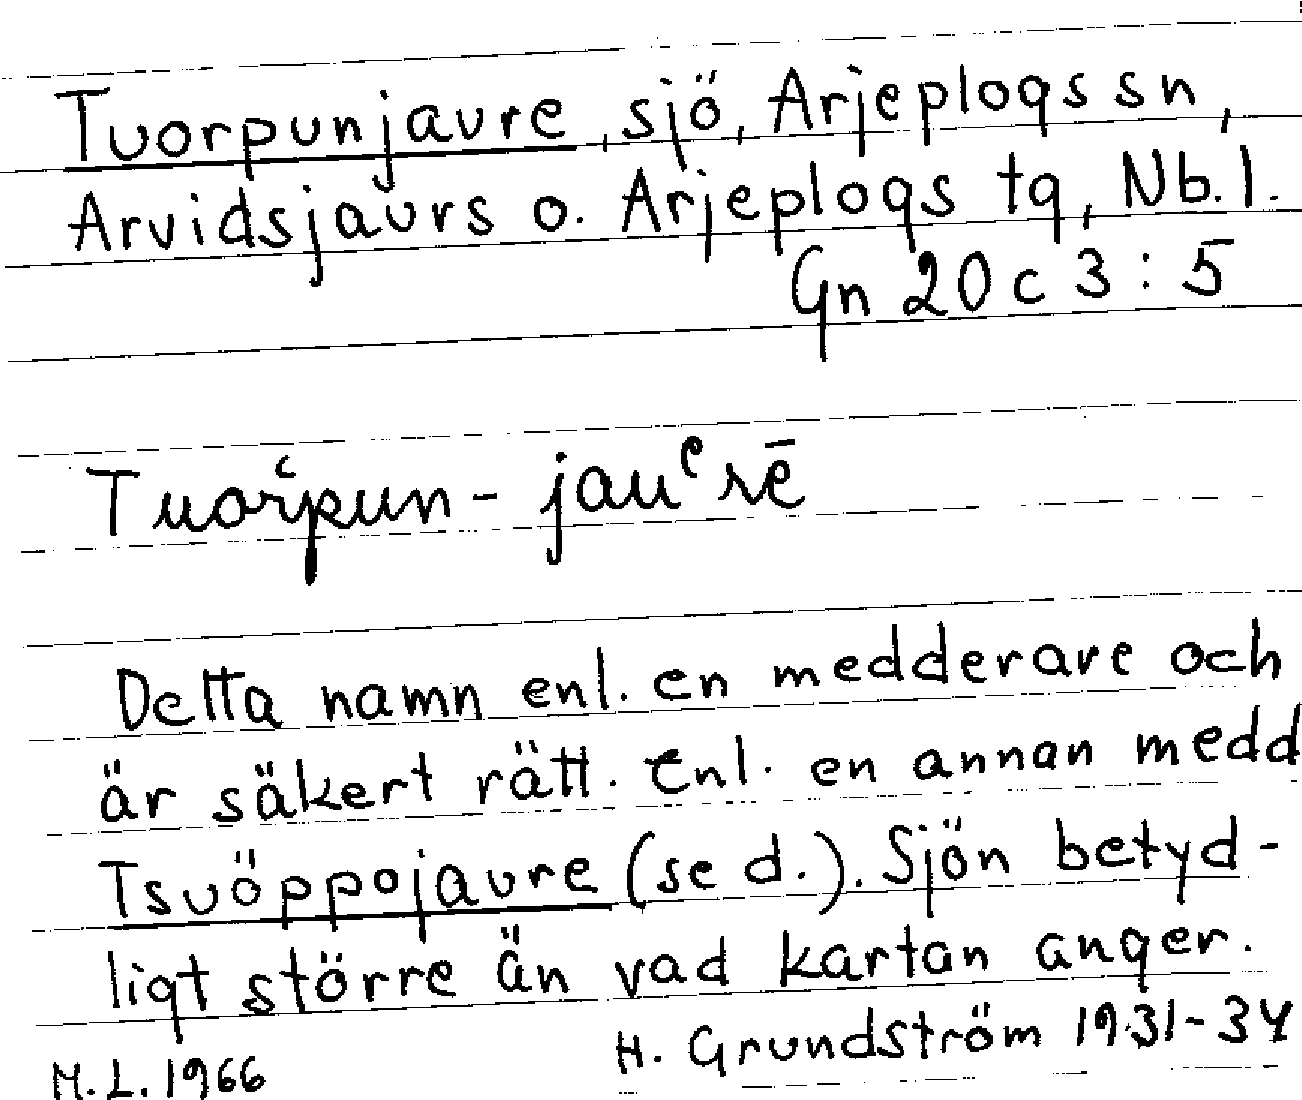 Tuorpunjaure, sjö, Arjeplogs sn,
Arvidsjaurs o. Arjeplogs tg, Nb. l.
Gn 20 c 3 : 5
Tuorʻpun - jauᵉrē
Detta namn enl. en medderare och
är säkert rätt. Enl. en annan medd
Tsuöppojaure (se d.). Sjön betyd-
ligt större än vad kartan anger.
H. Grundström 1931-34
M.L. 1966